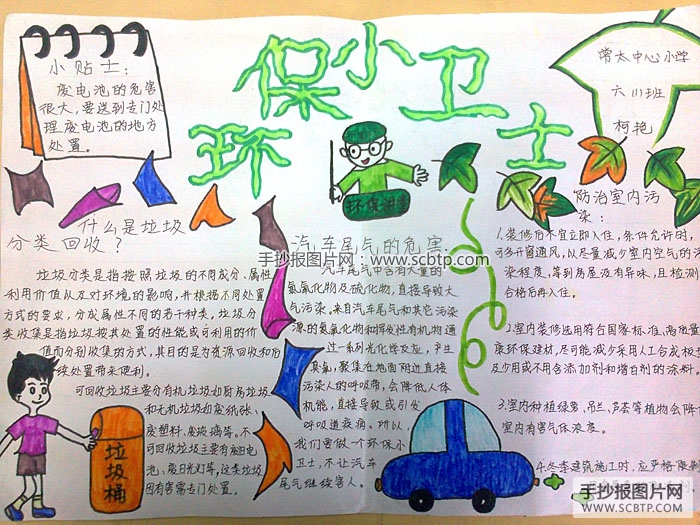 环保小卫士
小贴士：
废电池的危害
很大，要送到专门处
理废电池的地方
处置。
常太中心小学
六(1)班
柯艳
什么是垃圾
分类回收？
垃圾分类是指按照垃圾的不同成分、属性
利用价值以及对环境的影响，并根据不同处置
方式的要求，分成属性不同的若干种类。垃圾分
类收集是指垃圾按其处置的性能或可利用的价
值而分别收集的方式，其目的是为资源回收和后
续处置带来便利。
可回收垃圾主要分有机垃圾如厨房垃圾
和无机垃圾如废纸张、
废塑料、废玻璃等。不
可回收垃圾主要有废电
池、废日光灯等，这类垃圾
因有害需专门处置。
垃圾桶
环保讲堂
汽车尾气的危害：
汽车尾气中含有大量的
氮氧化物及硫化物，直接导致大
气污染。来自汽车尾气和其它污染
源的氮氧化物和挥发性有机物通
过一系列光化学反应，产生
臭氧，聚集在地面附近直接
污染人的呼吸带，会降低人体
机能，直接导致或引发
呼吸道疾病。所以，
我们要做个环保小
卫士，不让汽车
尾气继续害人。
防治室内污
染：
1.装修后不宜立即入住，条件允许时，
可多开窗通风，以尽量减少室内空气的污
染程度，等到房屋没有异味，且检测
合格后再入住。
2.室内装修选用符合国家标准、高质量
康环保建材，尽可能减少采用人工合成板
及少用或不用含添加剂和增白剂的涂料。
3.室内种植绿萝、吊兰、芦荟等植物会降
室内有害气体浓度。
4.冬季建筑施工时，应严格限制
手抄报图片网：www.scbtp.com
手抄报图片网
WWW.SCBTP.COM